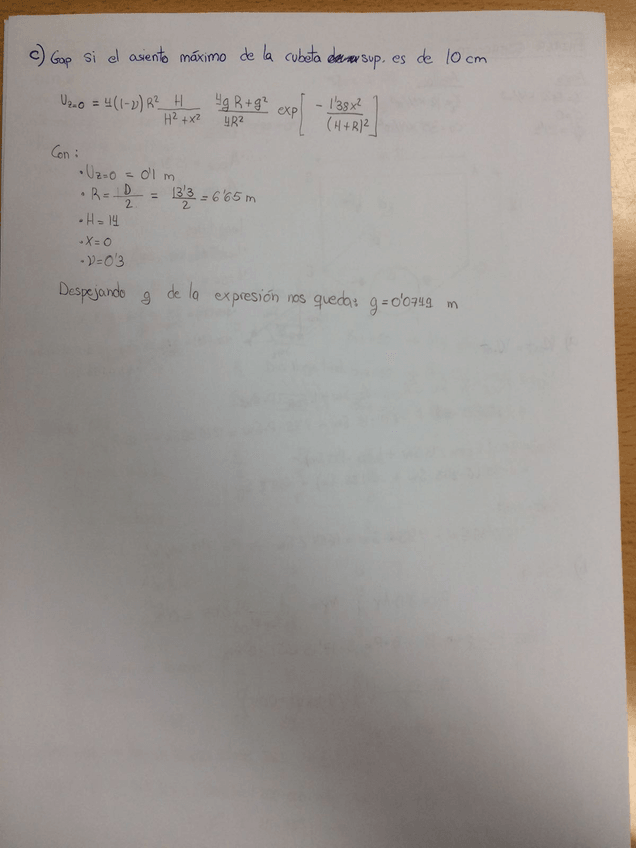 c) Gap si el asiento máximo de la cubeta sup. es de 10 cm
U_{z=0} = 4(1-ν)R² H/(H²+x²) (4gR+g²)/(4R²) exp[-1'38x²/(H+R)²]
Con:
· U_{z=0} = 0'1 m
· R = D/2 = 13'3/2 = 6'65 m
· H = 14
· X = 0
· ν = 0'3
Despejando g de la expresión nos queda: g = 0'0749 m